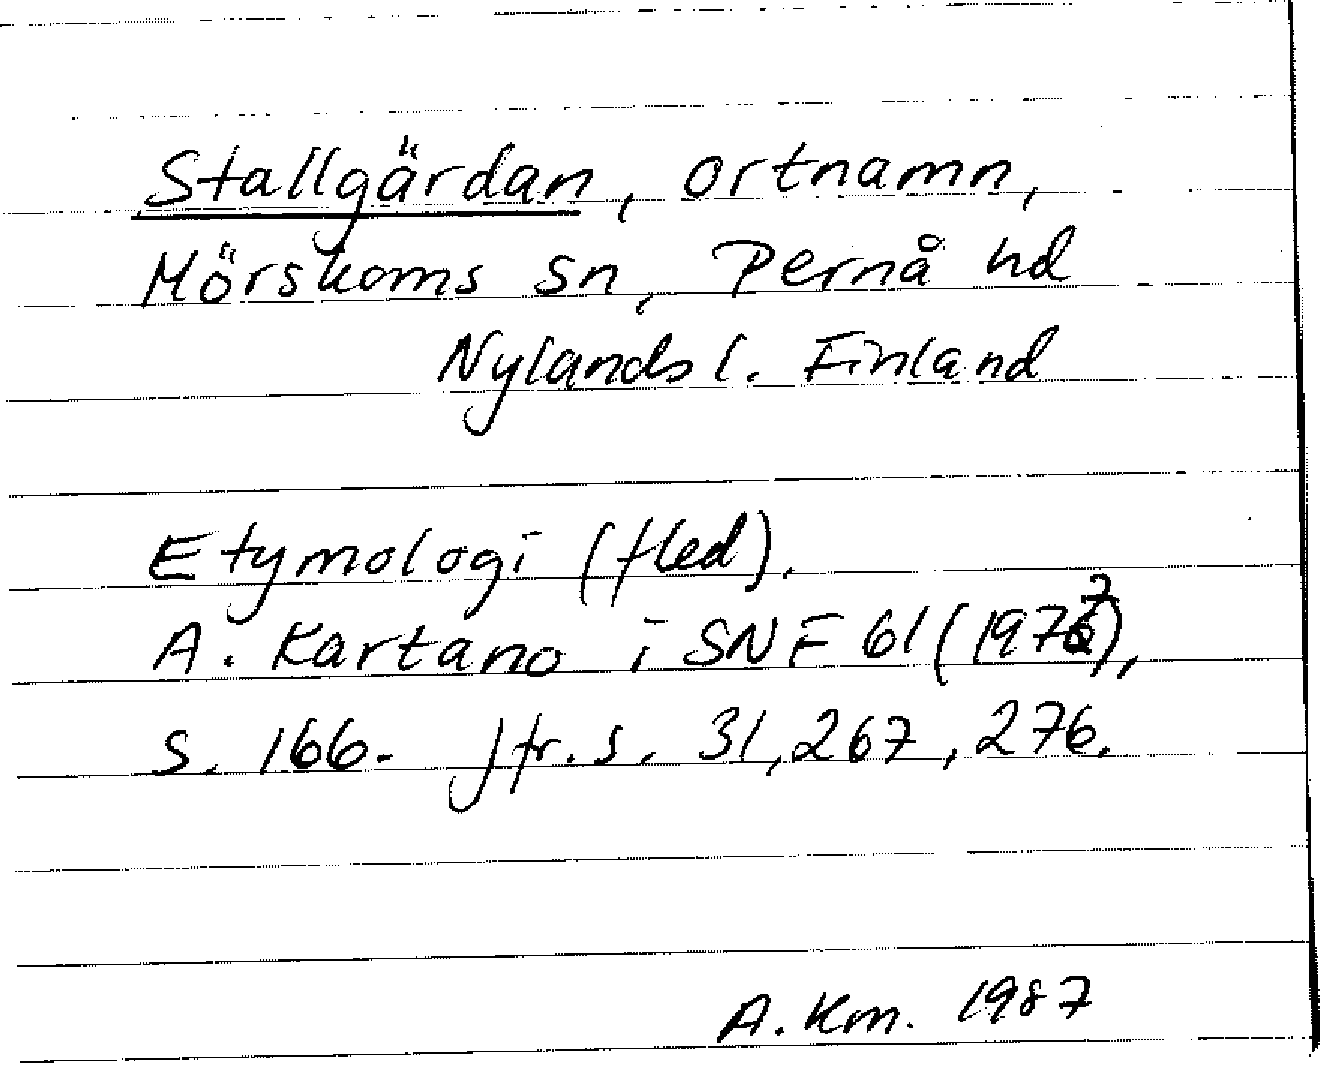 Stallgärdan, ortnamn,
Mörskoms sn, Pernå hd
Nylands l. Finland
Etymologi (fled).
A. Kartano i SNF 61 (1977),
s. 166. Jfr. s. 31, 267, 276.
A. Km. 1987